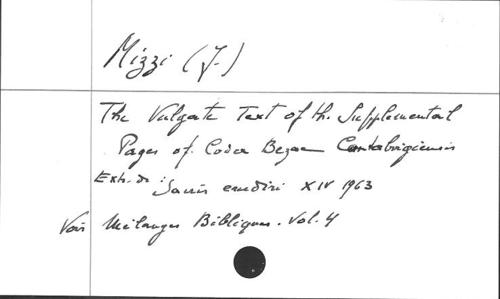 Mizzi (J.)
The Vulgate Text of the Supplemental
Pages of Codex Bezae Cantabrigiensis
Extr. de : Sacris erudiri XIV 1963
Voir Mélanges Bibliques. Vol. 4